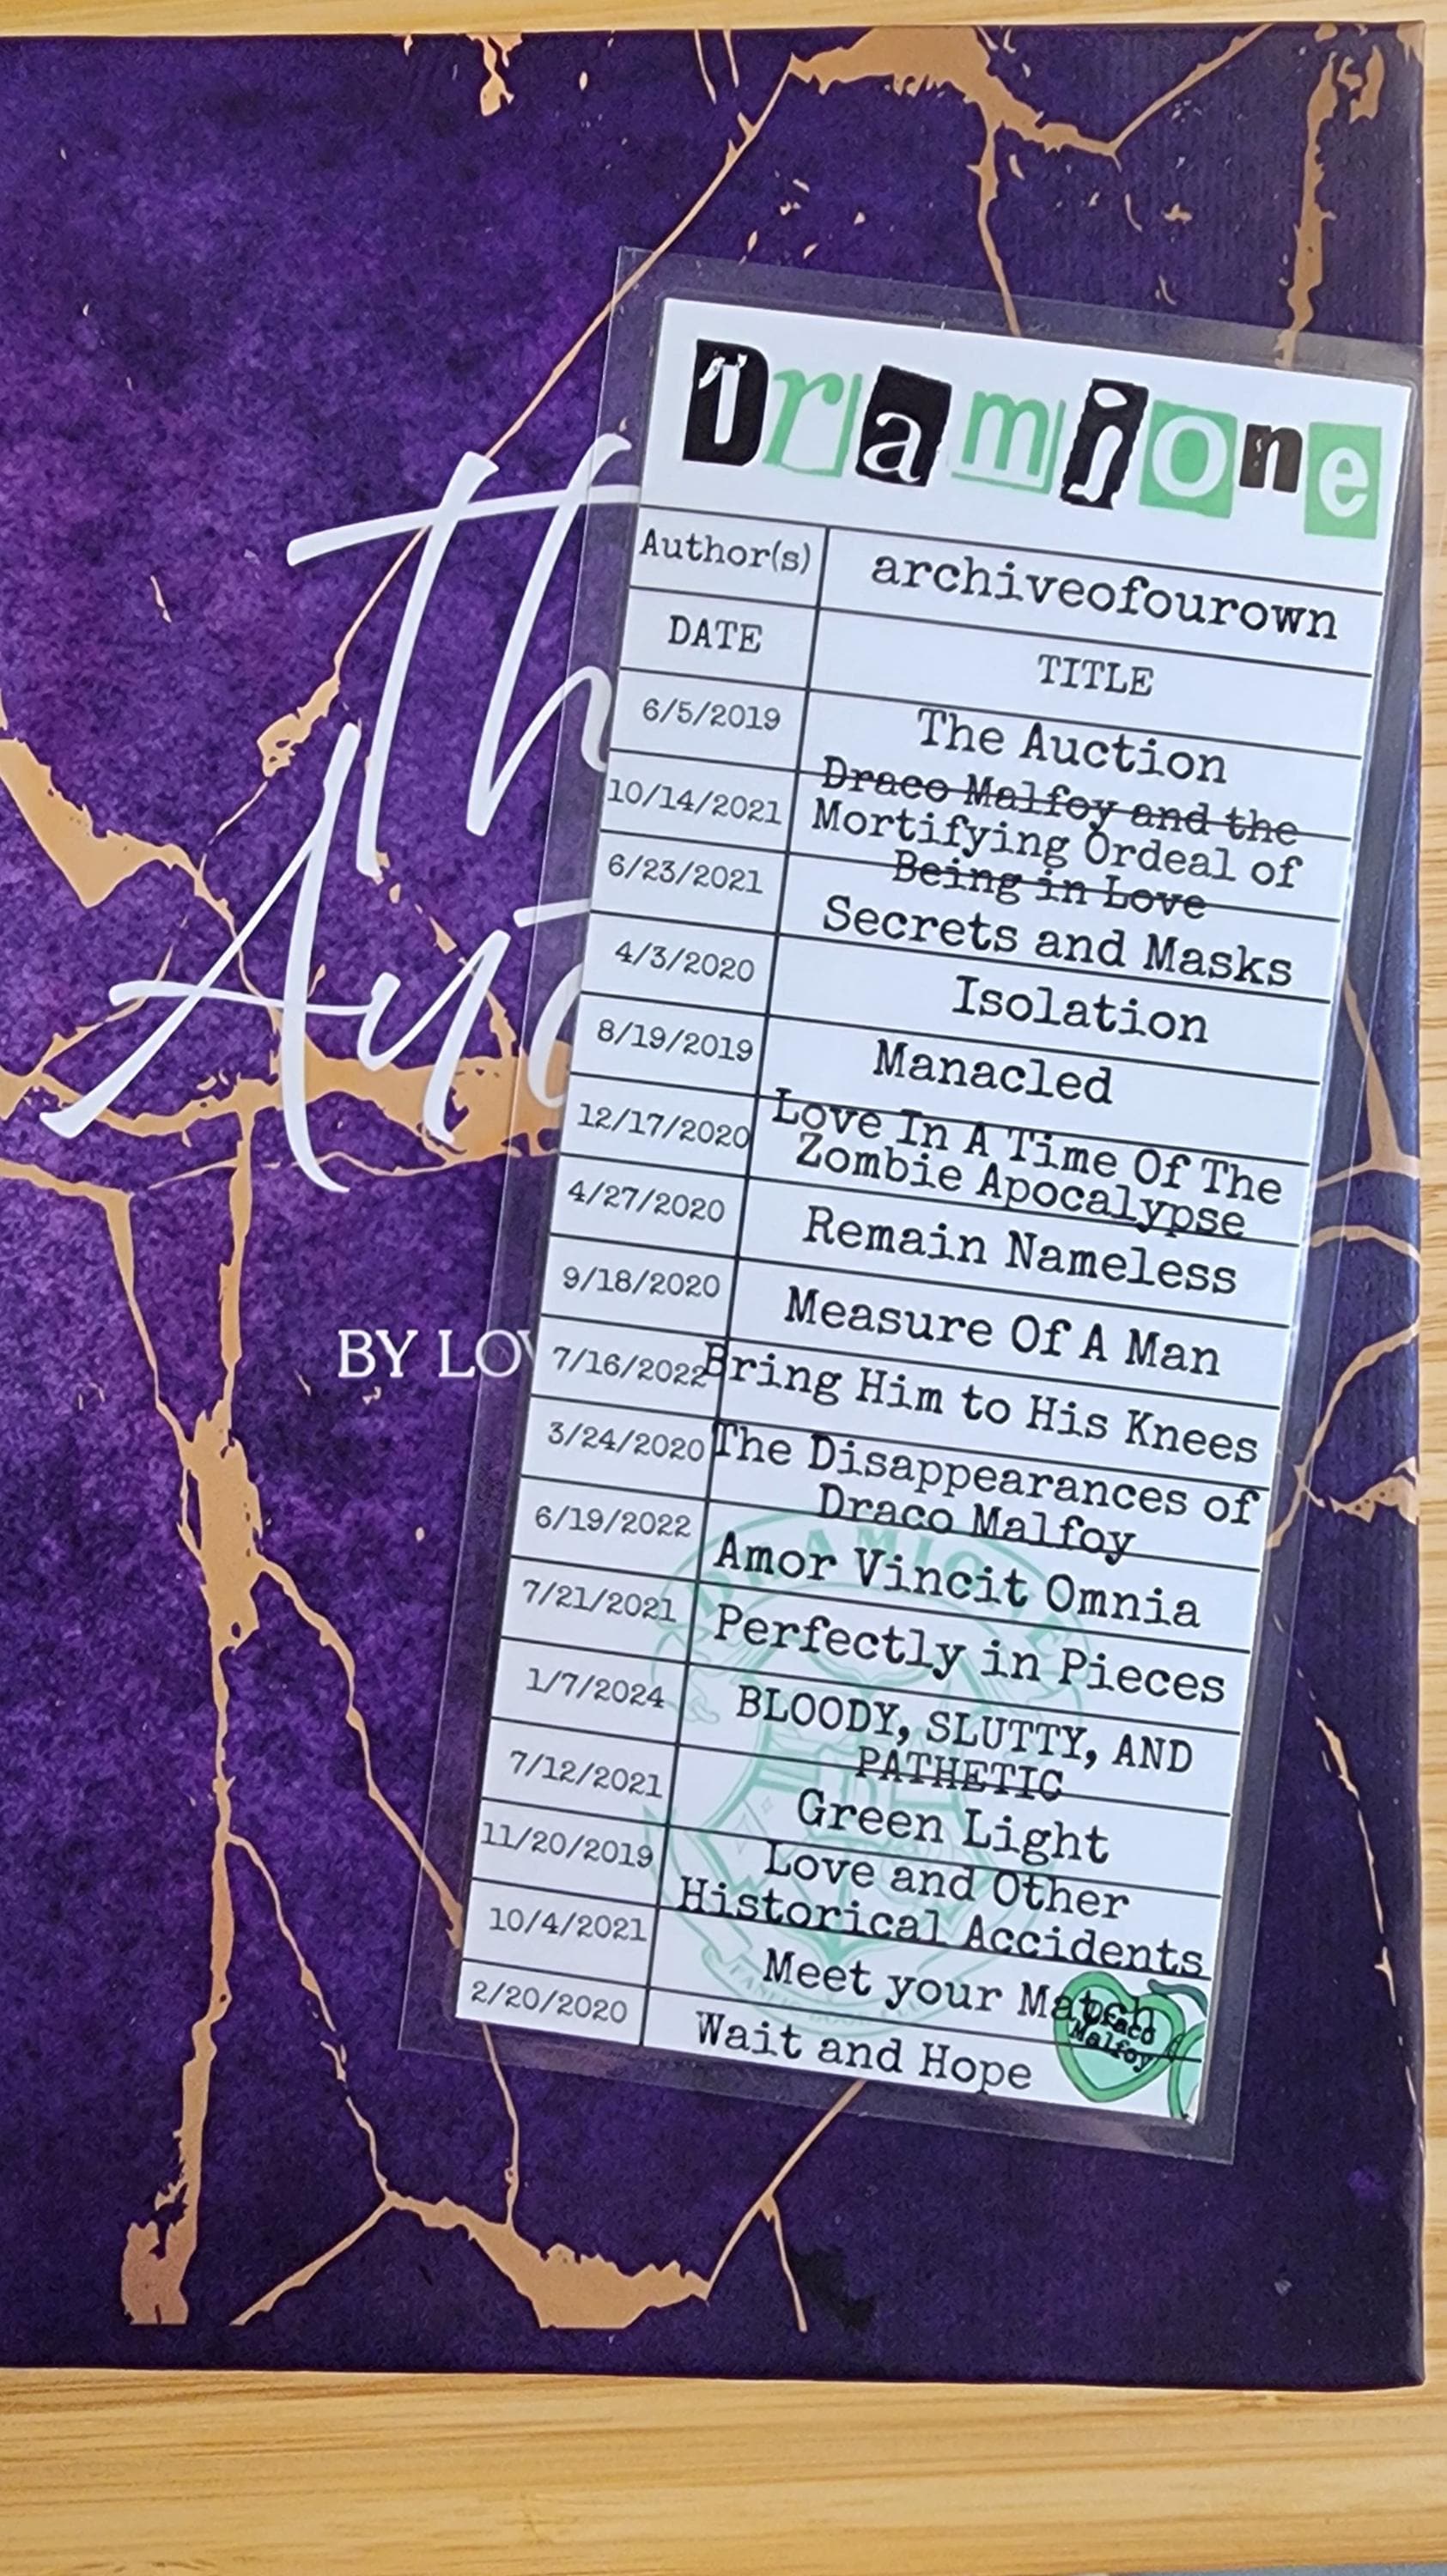 Dramione
Author(s) archiveofourown
DATE TITLE
6/5/2019 The Auction
10/14/2021 Draco Malfoy and the
Mortifying Ordeal of
Being in Love
6/23/2021 Secrets and Masks
4/3/2020 Isolation
8/19/2019 Manacled
12/17/2020 Love In A Time Of The
Zombie Apocalypse
4/27/2020 Remain Nameless
9/18/2020 Measure Of A Man
7/16/2022 Bring Him to His Knees
3/24/2020 The Disappearances of
Draco Malfoy
6/19/2022 Amor Vincit Omnia
7/21/2021 Perfectly in Pieces
1/7/2024 BLOODY, SLUTTY, AND
PATHETIC
7/12/2021 Green Light
11/20/2019 Love and Other
Historical Accidents
10/4/2021 Meet your Match
2/20/2020 Wait and Hope
Draco
Malfoy
DRAMIONE
Th
Au
BY LO